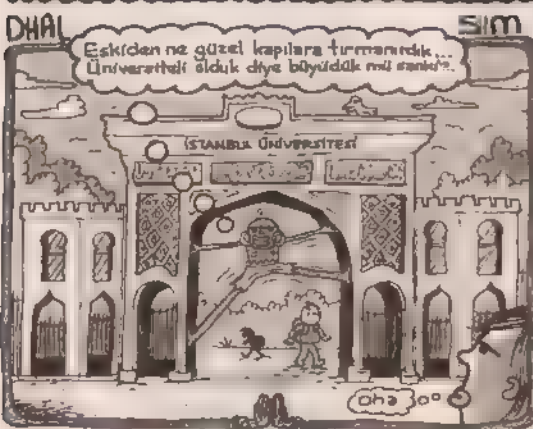 DHAL
Eskiden ne güzel kapılara tırmanırdık...
Üniversiteli olduk diye büyüdük mü sanki?..
İSTANBUL ÜNİVERSİTESİ
Oha